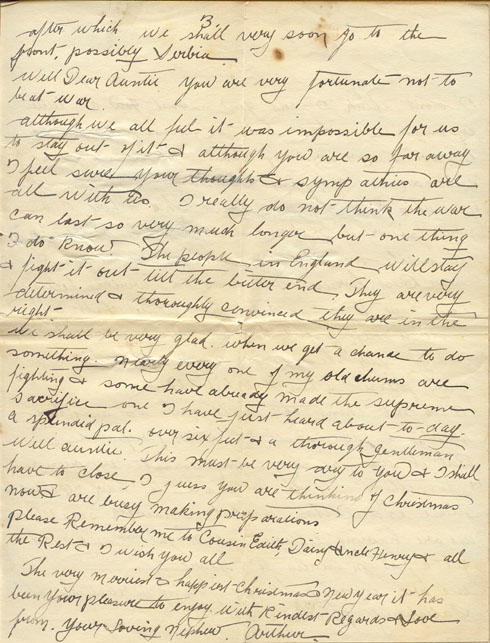 3
after which we shall very soon go to the
front, possibly Serbia
Well Dear Auntie you are very fortunate not to
be at war.
although we all feel it was impossible for us
to stay out of it & although you are so far away
I feel sure your thoughts & sympathies are
all with us. I really do not think the war
can last so very much longer but one thing
I do know The people in England will stay
& fight it out till the bitter end. They are very
determined & thoroughly convinced they are in the
right
We shall be very glad. when we get a chance to do
something. nearly every one of my old chums are
fighting & some have already made the supreme
sacrifice one I have just heard about to-day
a splendid pal. over six feet & a thorough gentleman
Well auntie. This must be very dry to you & I shall
have to close. I guess you are thinking of Christmas
now & are busy making preparations
please Remember me to Cousin Edith, Daisy & uncle Henry & all
the Rest & I wish you all
The very merriest & happiest Christmas & New year it has
been Your pleasure to enjoy with Kindest Regards & Love
from. Your Loving Nephew Arthur